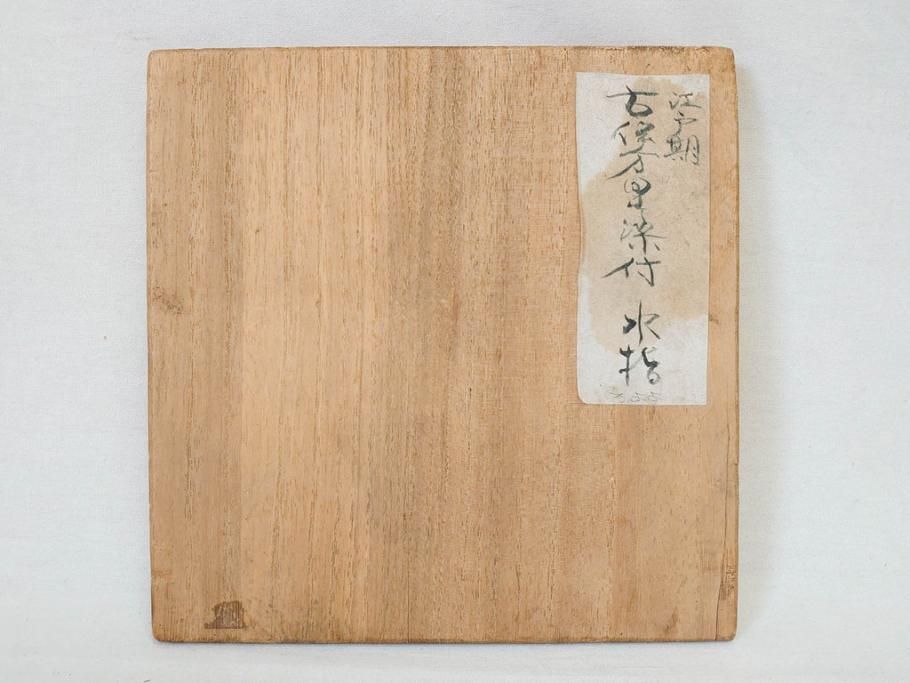 江戸期
古伊万里染付 水指